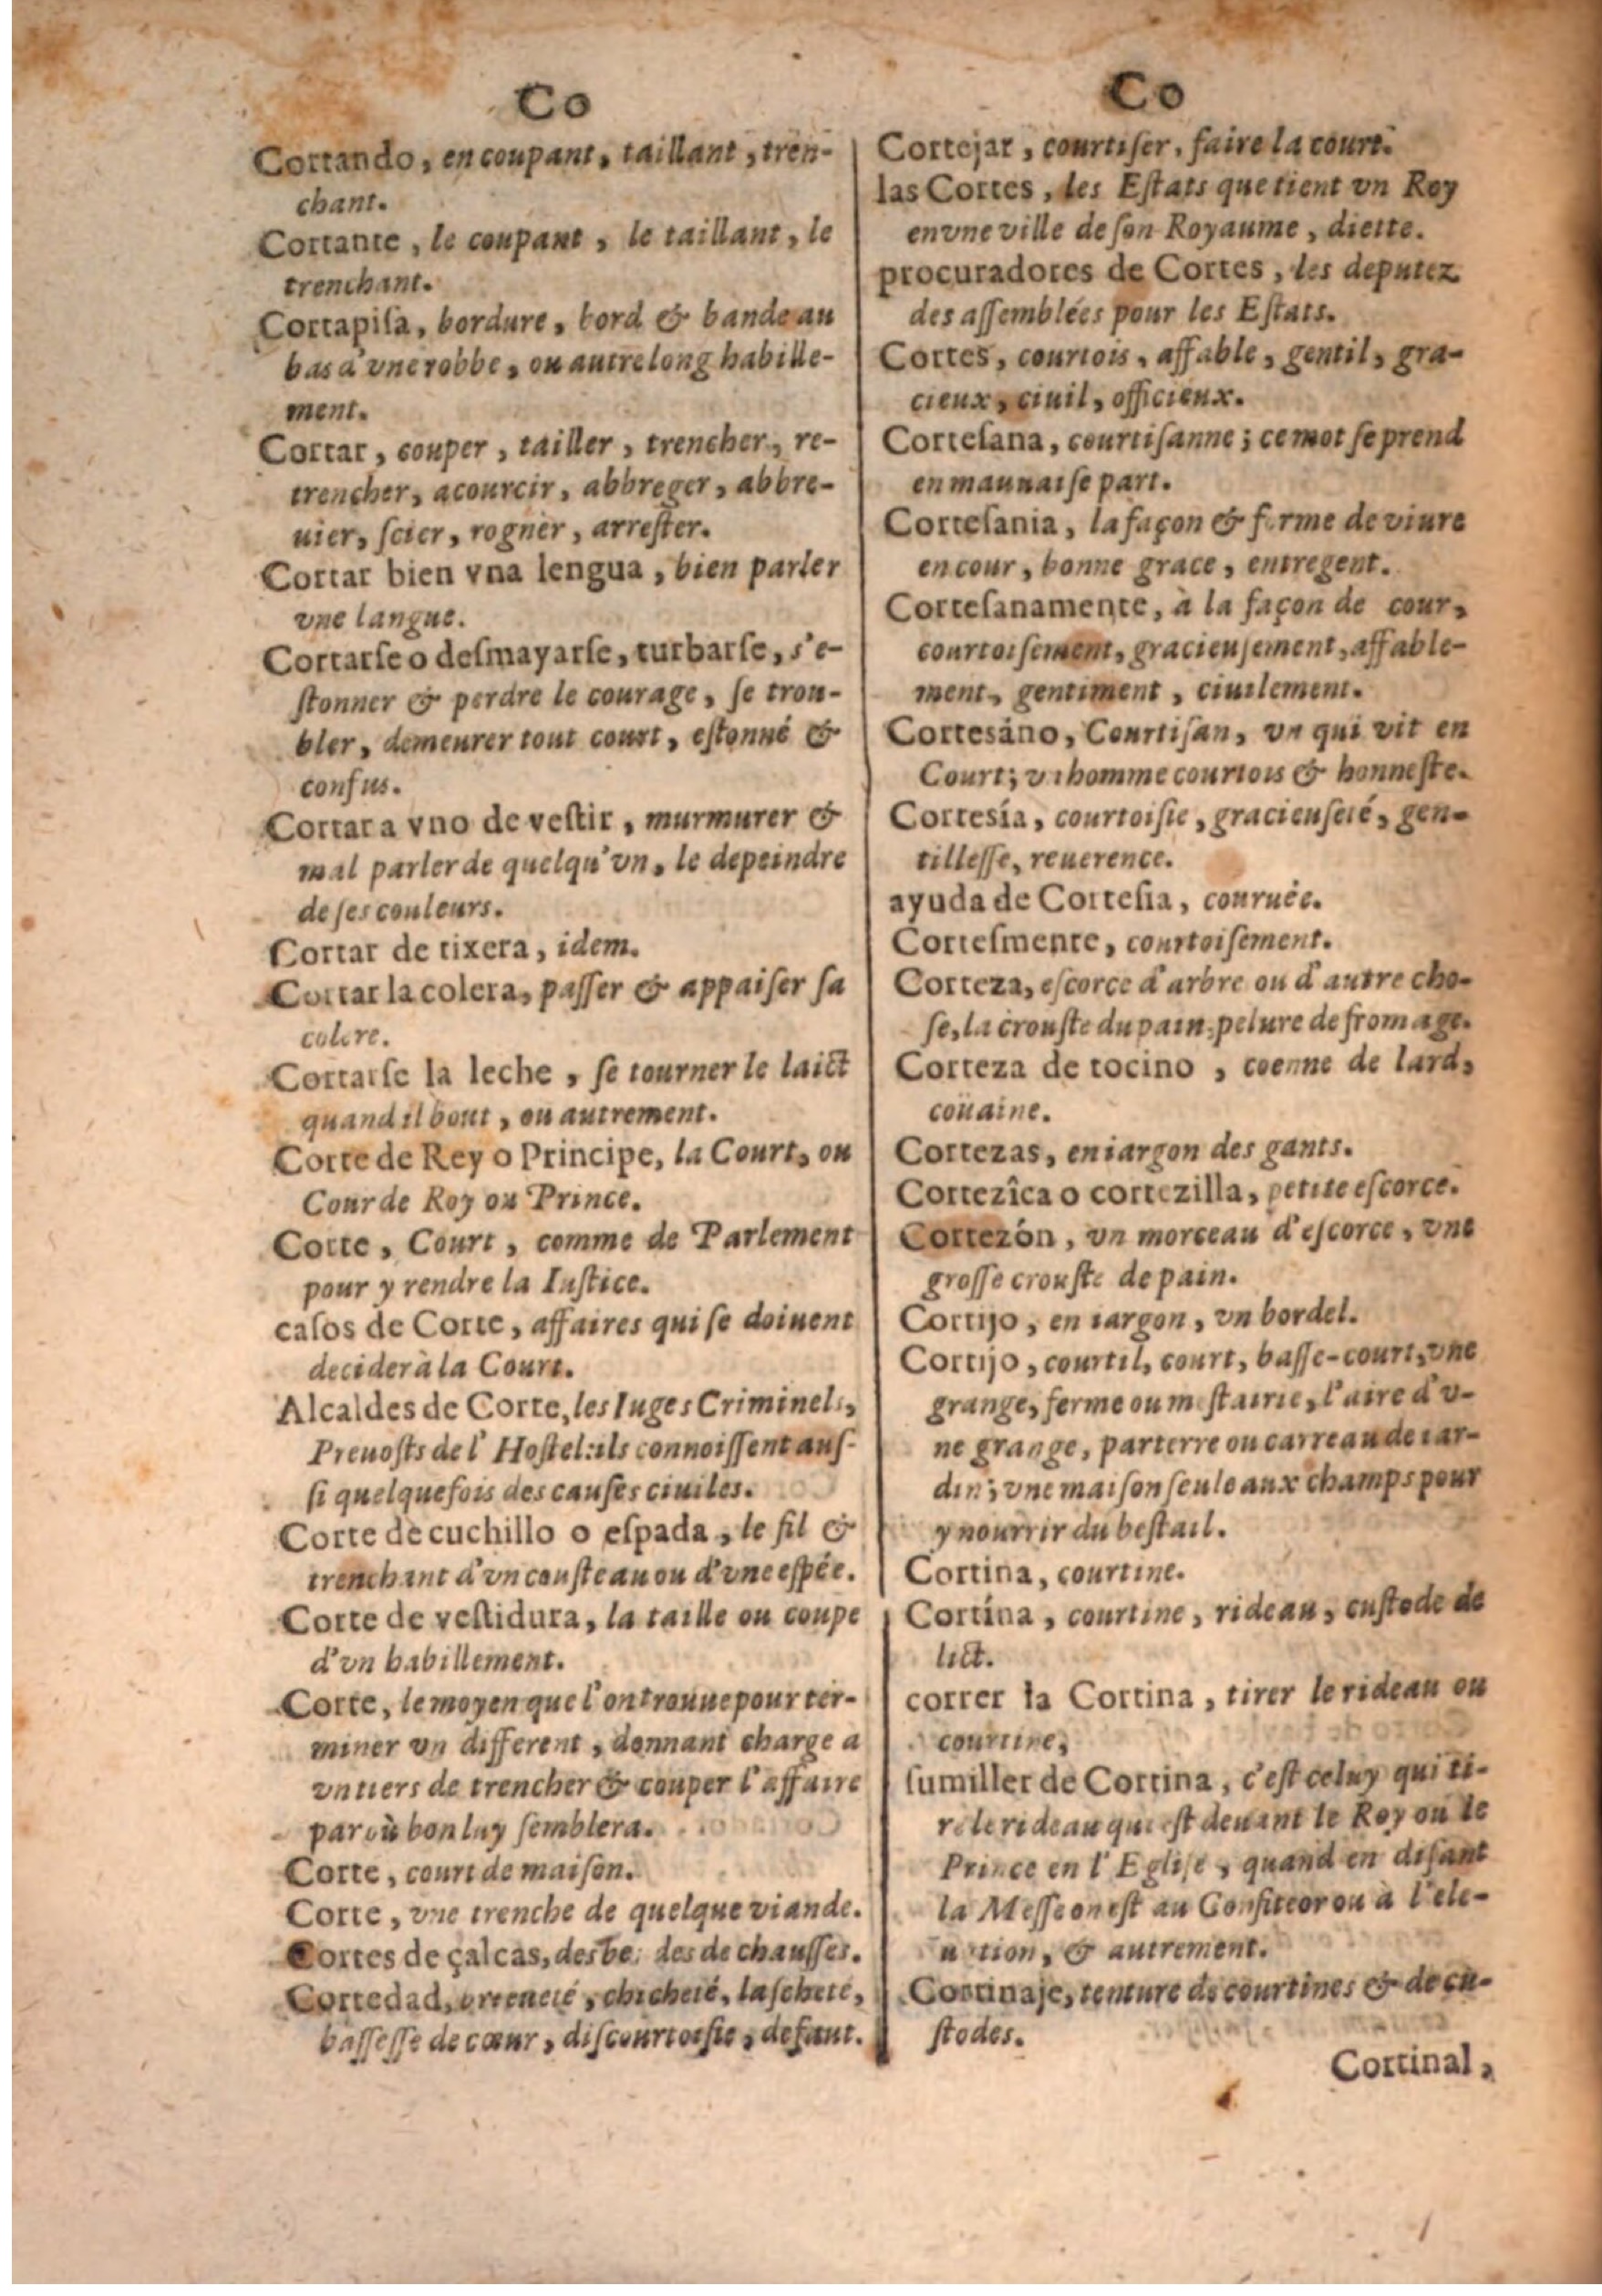 Co
Cortando, en coupant, taillant, tren-
chant.
Cortante, le coupant, le taillant, le
trenchant.
Cortapiſa, bordure, bord & bande au
bas d'vne robbe, ou autre long habille-
ment.
Cortar, couper, tailler, trencher, re-
trencher, acourcir, abbreger, abbre-
uier, ſcier, rogner, arreſter.
Cortar bien vna lengua, bien parler
vne langue.
Cortarſe o deſmayarſe, turbarſe, s'e-
ſtonner & perdre le courage, ſe trou-
bler, demeurer tout court, eſtonné &
confus.
Cortar a vno de veſtir, murmurer &
mal parler de quelqu'vn, le depeindre
de ſes couleurs.
Cortar de tixera, idem.
Cortar la colera, paſſer & appaiſer ſa
colere.
Cortarſe la leche, ſe tourner le laict
quand il bout, ou autrement.
Corte de Rey o Principe, la Court, ou
Cour de Roy ou Prince.
Corte, Court, comme de Parlement
pour y rendre la Iuſtice.
caſos de Corte, affaires qui ſe doiuent
decider à la Court.
Alcaldes de Corte, les Iuges Criminels,
Preuoſts de l'Hoſtel: ils connoiſſent auſ-
ſi quelquefois des cauſes ciuiles.
Corte de cuchillo o eſpada, le fil &
trenchant d'vn couſteau ou d'vne eſpée.
Corte de veſtidura, la taille ou coupe
d'vn habillement.
Corte, le moyen que l'on trouue pour ter-
miner vn different, donnant charge a
vn tiers de trencher & couper l'affaire
par où bon luy ſemblera.
Corte, court de maiſon.
Corte, vne trenche de quelque viande.
Cortes de çalcas, des des de chauſſes.
Cortedad, chicheté, laſcheté,
baſſeſſe de cœur, diſcourtoiſie, defaut.
Co
Cortejar, courtiſer, faire la court.
las Cortes, les Eſtats que tient vn Roy
en vne ville de ſon Royaume, diette.
procuradores de Cortes, les deputez
des aſſemblées pour les Eſtats.
Cortes, courtois, affable, gentil, gra-
cieux, ciuil, officieux.
Corteſana, courtiſanne; ce mot ſe prend
en mauuaiſe part.
Corteſania, la façon & forme de viure
en cour, bonne grace, entregent.
Corteſanamente, à la façon de cour,
courtoiſement, gracieuſement, affable-
ment, gentiment, ciuilement.
Cortesáno, Courtiſan, vn qui vit en
Court; vn homme courtois & honneſte.
Cortesía, courtoiſie, gracieuſeté, gen-
tilleſſe, reuerence.
ayuda de Corteſia, couruée.
Corteſmente, courtoiſement.
Corteza, eſcorce d'arbre ou d'autre cho-
ſe, la crouſte du pain, pelure de fromage.
Corteza de tocino, coenne de lard,
coüaine.
Cortezas, en iargon des gants.
Cortezîca o cortezilla, petite eſcorce.
Cortezón, vn morceau d'eſcorce, vne
groſſe crouſte de pain.
Cortijo, en iargon, vn bordel.
Cortijo, courtil, court, baſſe-court, vne
grange, ferme ou meſtairie, l'aire d'v-
ne grange, parterre ou carreau de iar-
din; vne maiſon ſeule aux champs pour
y nourrir du beſtail.
Cortina, courtine.
Cortína, courtine, rideau, cuſtode de
lict.
correr la Cortina, tirer le rideau ou
courtine,
ſumiller de Cortina, c'eſt celuy qui ti-
re le rideau qui eſt deuant le Roy ou le
Prince en l'Egliſe, quand en diſant
la Meſſe on eſt au Confiteor ou à l'ele-
uation, & autrement.
Cortinaje, tenture de courtines & de cu-
ſtodes.
Cortinal,